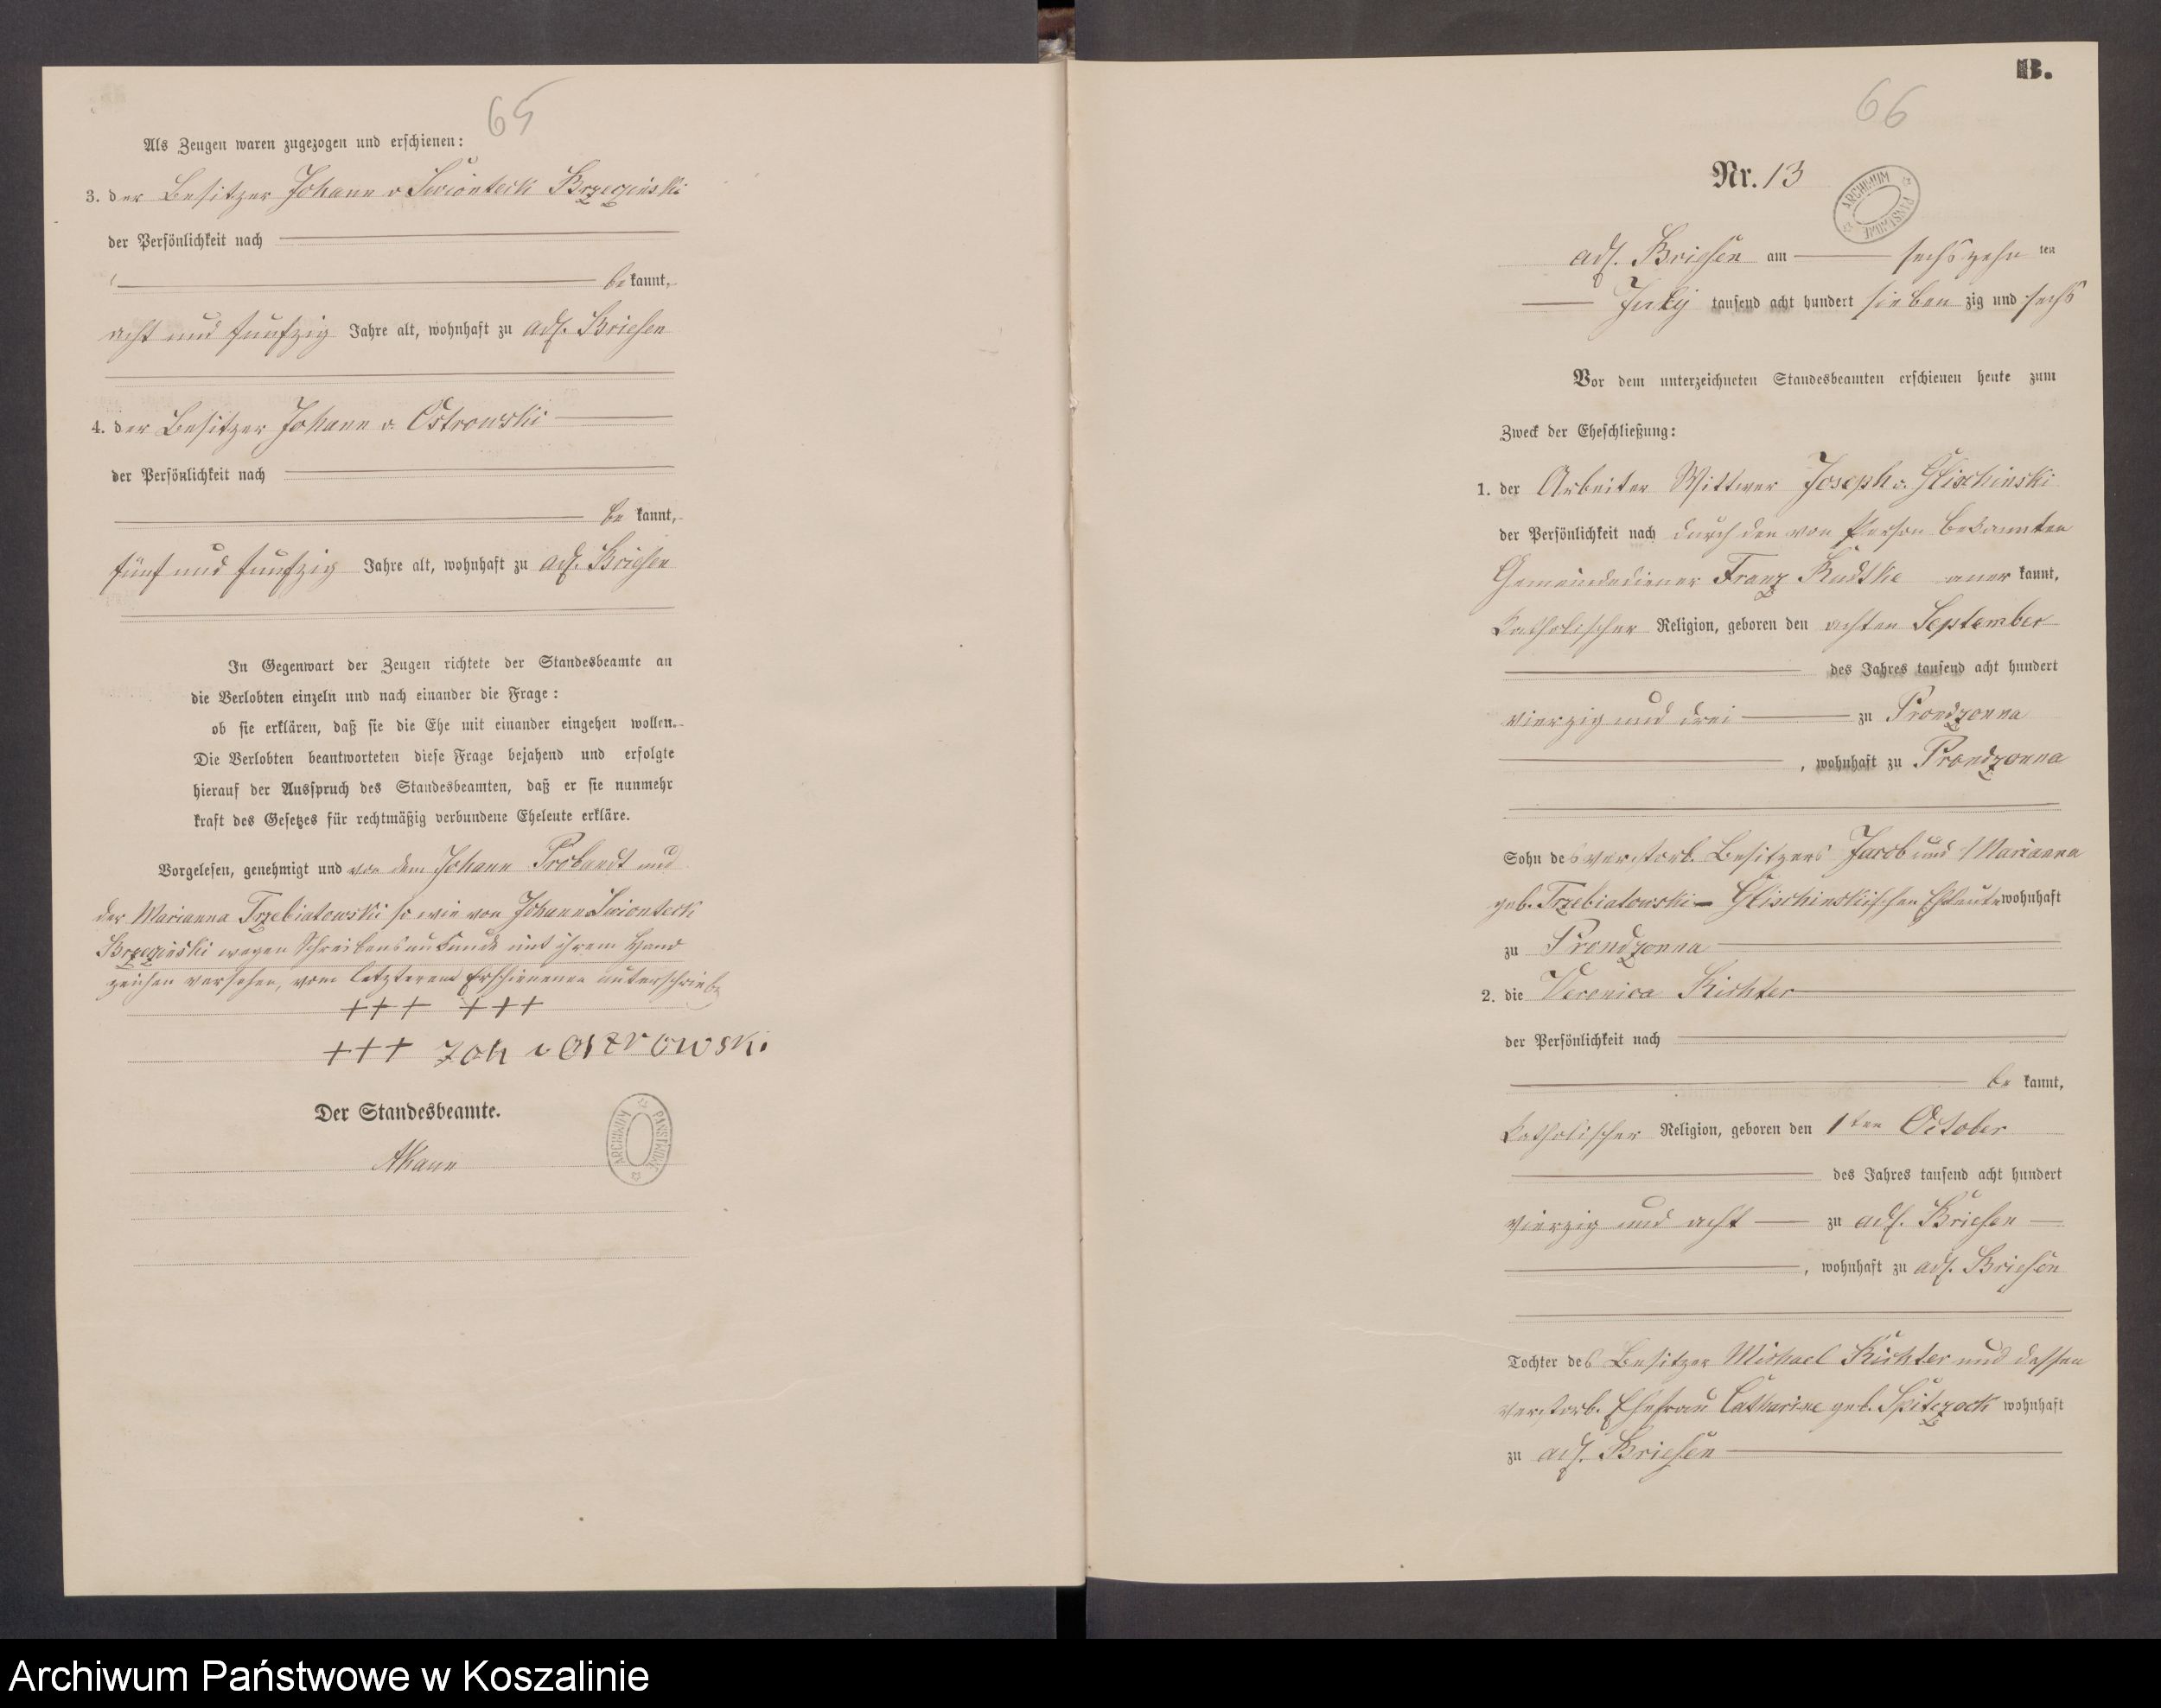 65
Als Zeugen waren zugezogen und erschienen:
3. der Besitzer Johann v Swionteck Brzezinski
der Persönlichkeit nach
be kannt,
acht und funfzig Jahre alt, wohnhaft zu adl. Briesen
4. der Besitzer Johann v. Ostrowski
der Persönlichkeit nach
be kannt,
fünf und funfzig Jahre alt, wohnhaft zu adl. Briesen
In Gegenwart der Zeugen richtete der Standesbeamte an
die Verlobten einzeln und nach einander die Frage:
ob sie erklären, daß sie die Ehe mit einander eingehen wollen.
Die Verlobten beantworteten diese Frage bejahend und erfolgte
hierauf der Ausspruch des Standesbeamten, daß er sie nunmehr
kraft des Gesetzes für rechtmäßig verbundene Eheleute erkläre.
Vorgelesen, genehmigt und von dem Johann Probandt und
der Marianna Trzebiatowski so wie von Johann Swionteck
Brzezinski wegen Schreibensunkunde mit ihrem Hand
zeichen versehen, vom letzteren Erschienenen unterschrieben
+++ +++
+++ Joh v Ostrowski
Der Standesbeamte.
ARCHIWUM PAŃSTWOWE
B.
66
Nr. 13
ARCHIWUM PAŃSTWOWE
adl. Briesen am sechszehn ten
July tausend acht hundert sieben zig und sechs
Vor dem unterzeichneten Standesbeamten erschienen heute zum
Zweck der Eheschließung:
1. der Arbeiter Wittwer Joseph v. Glischinski
der Persönlichkeit nach durch den von Person bekannten
Gemeindediener Franz Radtke aner kannt,
katholischer Religion, geboren den achten September
des Jahres tausend acht hundert
vierzig und drei zu Prondzonna
, wohnhaft zu Prondzonna
Sohn des verstorb. Besitzers Jacob und Marianna
geb. Trzebiatowski - Glischinskischen Eheleute wohnhaft
zu Prondzonna
2. die Veronica Richter
der Persönlichkeit nach
be kannt,
katholischer Religion, geboren den 1ten October
des Jahres tausend acht hundert
vierzig und acht zu adl. Briesen
, wohnhaft zu adl. Briesen
Tochter des Besitzer Michael Richter und dessen
verstorb. Ehefrau Catharine geb. Spitzock wohnhaft
zu adl. Briesen
Archiwum Państwowe w Koszalinie